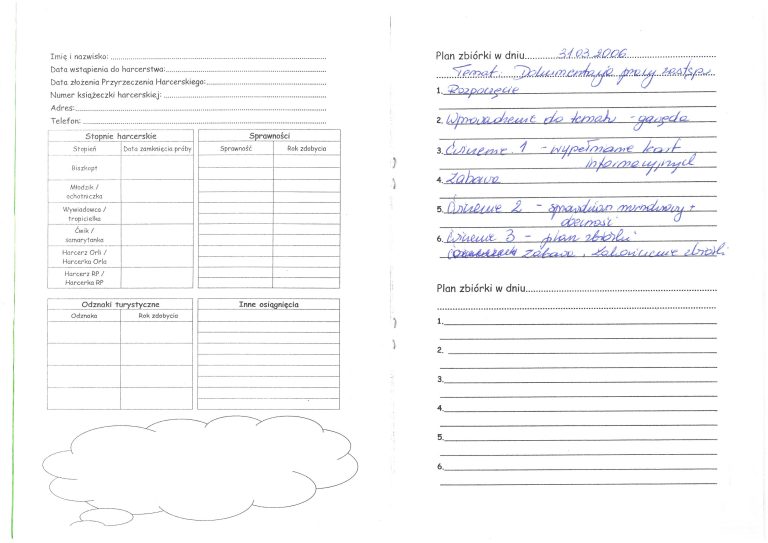 Imię i nazwisko:
Data wstąpienia do harcerstwa:
Data złożenia Przyrzeczenia Harcerskiego:
Numer książeczki harcerskiej:
Adres:
Telefon:
Stopnie harcerskie
Stopień Data zamknięcia próby
Biszkopt
Młodzik /
ochotniczka
Wywiadowca /
tropicielka
Ćwik /
samarytanka
Harcerz Orli /
Harcerka Orla
Harcerz RP /
Harcerka RP
Sprawności
Sprawność Rok zdobycia
Odznaki turystyczne
Odznaka Rok zdobycia
Inne osiągnięcia
Plan zbiórki w dniu 31.03.2006
Temat: Dokumentacja pracy zastępu
1. Rozpoczęcie
2. Wprowadzenie do tematu - gawęda
3. Ćwiczenie 1 - wypełnianie kart
informacyjnych
4. Zabawa
5. Ćwiczenie 2 - sprawdzian mundurowy +
obecności
6. Ćwiczenie 3 - plan zbiórki
zabawa, zakończenie zbiórki
Plan zbiórki w dniu
1.
2.
3.
4.
5.
6.